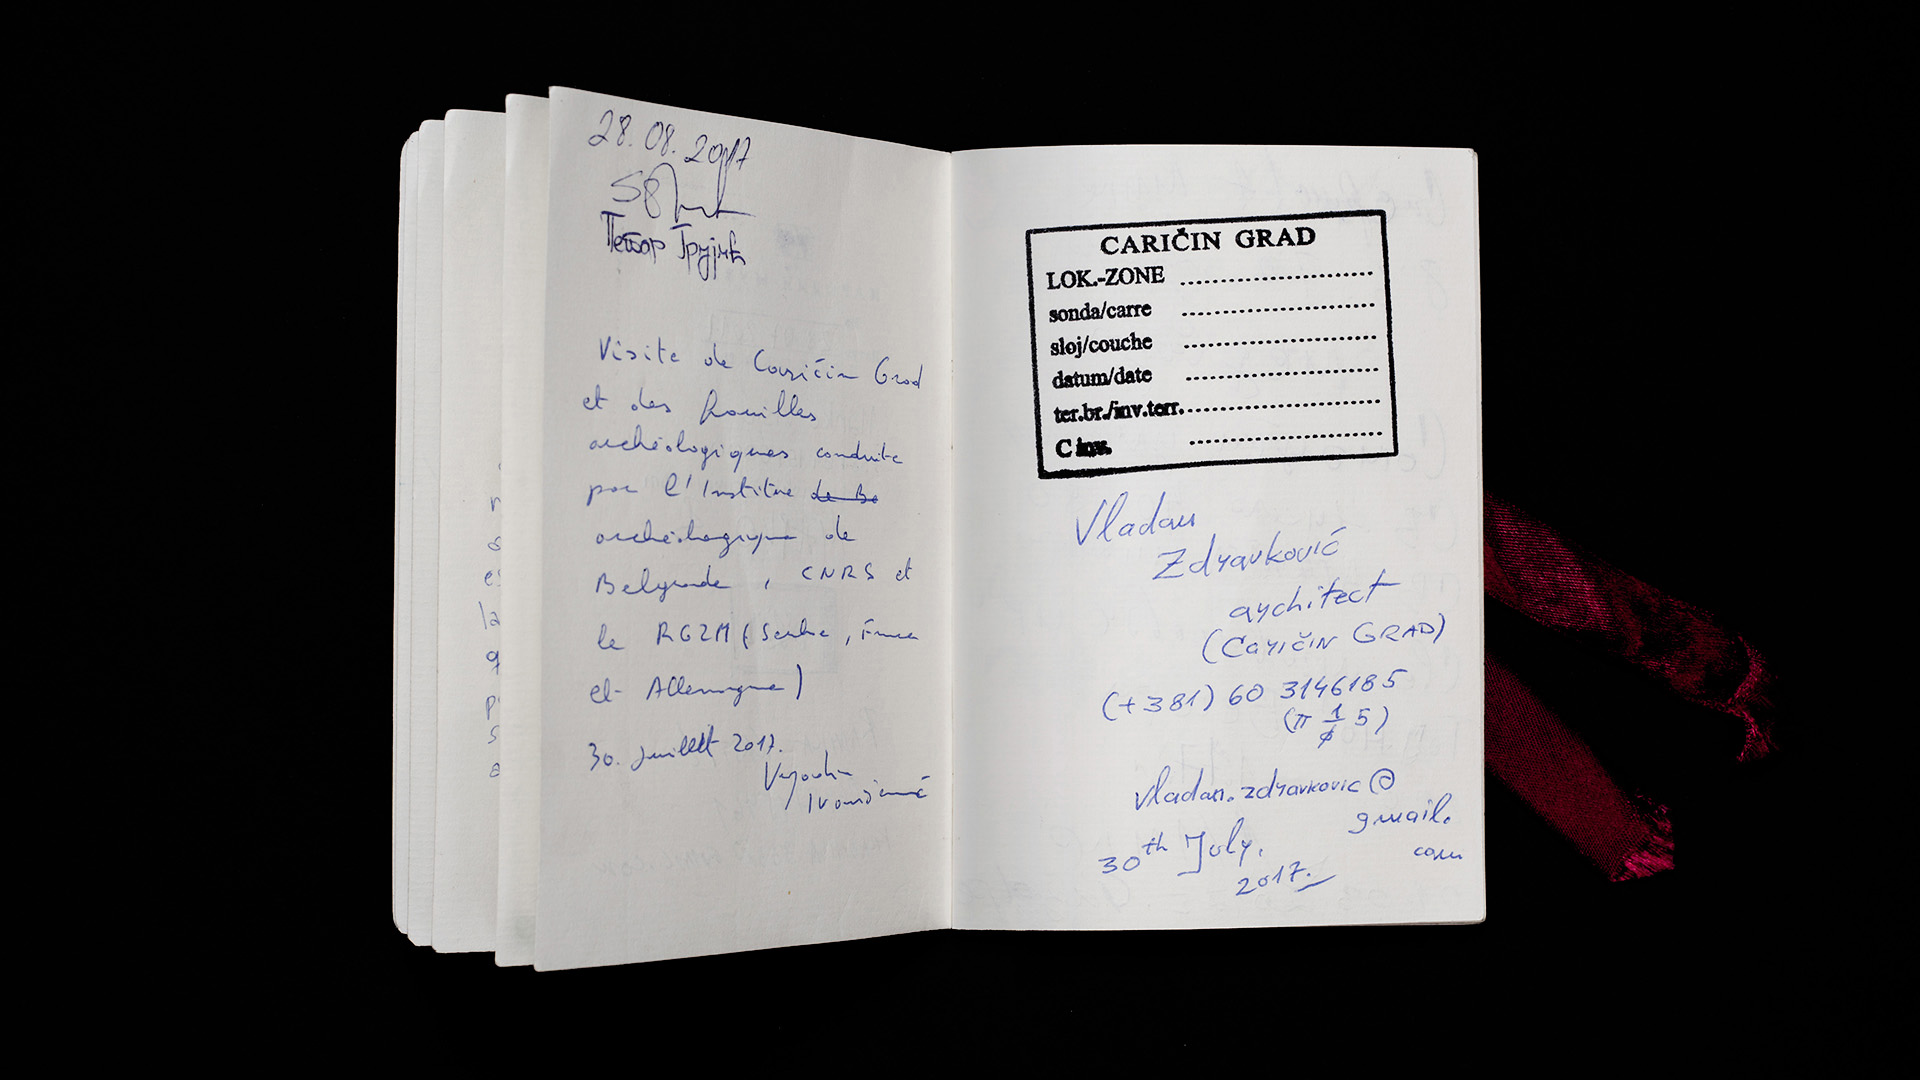 28.08.2017
Петар Грујић
Visite de Caričin Grad
et des fouilles
archéologiques conduite
par l'Institue de Be
archéologique de
Belgrade, CNRS et
le RGZM (Serbie, France
et Allemagne)
30. Juillet 2017.
Ivanišević
la
CARIČIN GRAD
LOK.-ZONE
sonda/carre
sloj/couche
datum/date
ter.br./inv.terr.
C inv.
Vladan
Zdravković
architect
(Caričin GRAD)
(+381) 60 3146185
(π 1/φ 5)
vladan.zdravkovic@
gmail.
com
30th July.
2017.